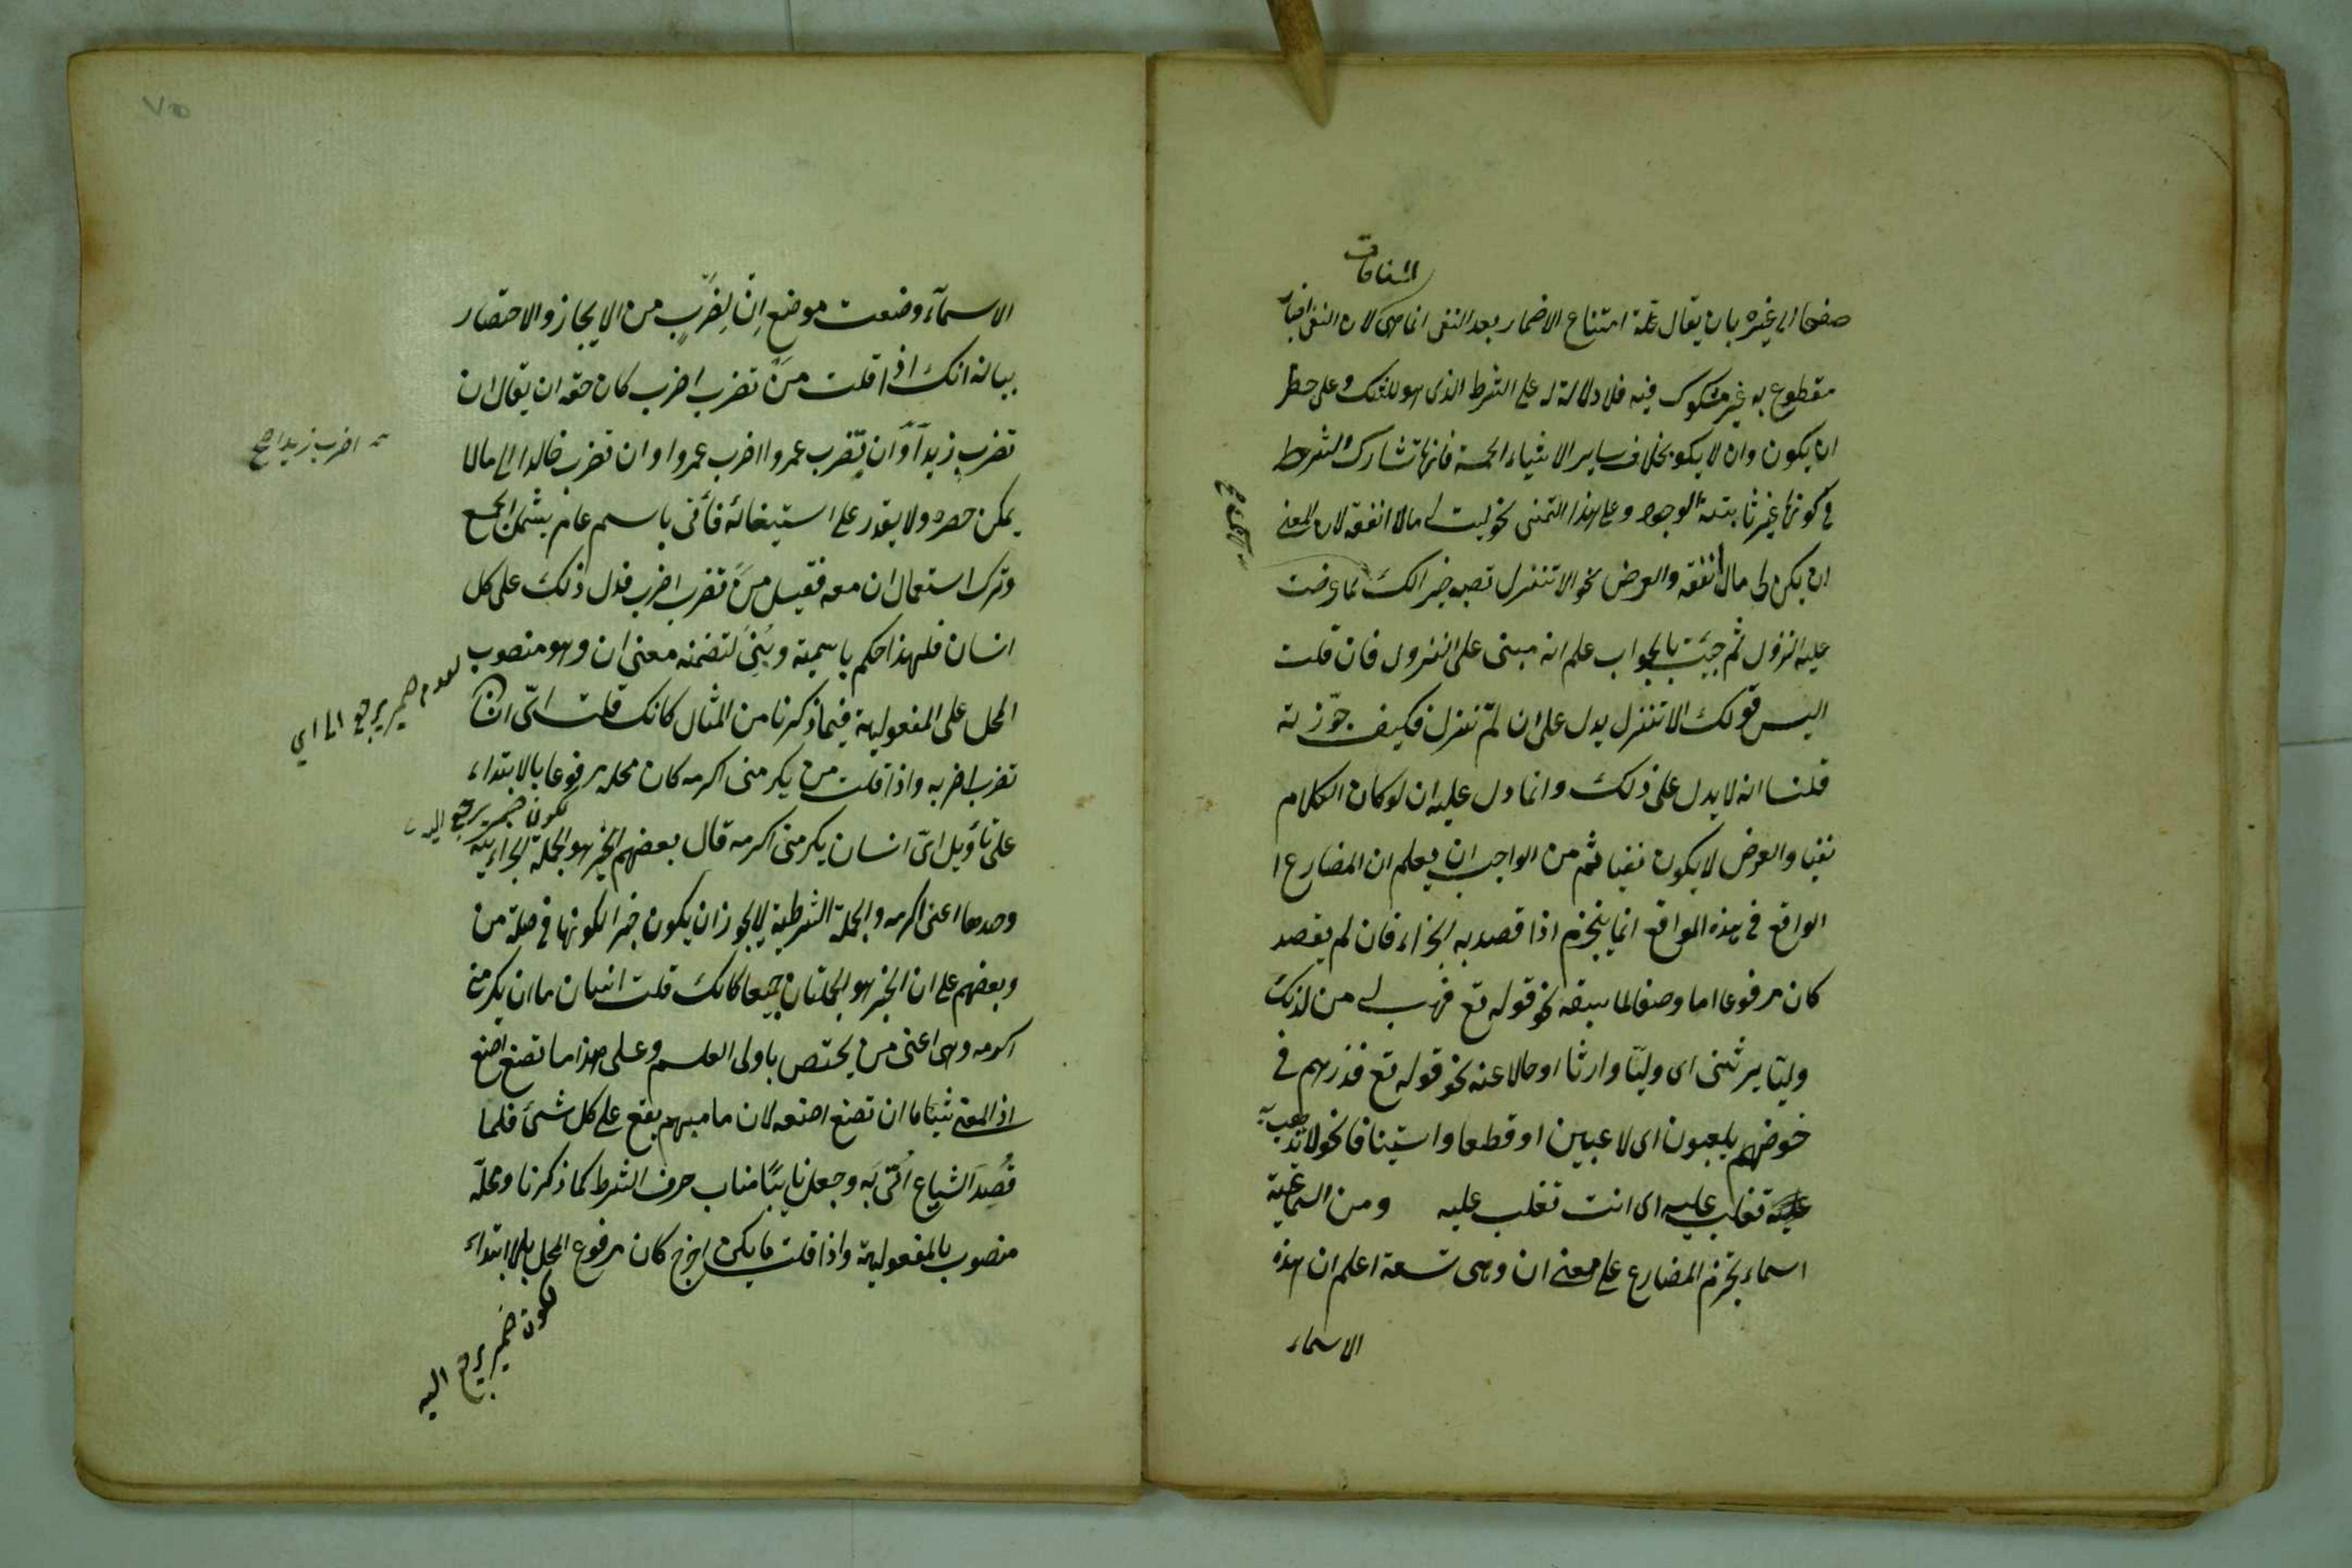 المنافات
صفحا الى غيره بان يقال علة امتناع الاضمار بعد النفى انما هى لان النفى اخبار
مقطوع به غير مشكوك فيه فلا دلالة له على الشرط الذى هو للشك وعلى خطر
ان يكون وان لا يكون بخلاف ساير الاشياء الخمسة فانها تشارك الشرط
فى كونها غير ثابتة الوجود وعلى هذا التمنى نحو ليت لى مالا انفقه لان المعنى
ان يكن لى مال انفقه والعرض نحو الا تنزل تصب خيرا لك لما عرضت
عليه النزول ثم جيئت بالجواب علم انه مبنى على النزول فان قلت
اليس قولك الا تنزل يدل على ان لم تنزل فكيف جوزته
قلنا انه لا يدل على ذلك وانما دل عليه ان لو كان الكلام
نفيا والعرض لا يكون نفيا ثم من الواجب ان يعلم ان المضارع ا
الواقع فى هذه المواقع انما ينجزم اذا قصد به الجزاء فان لم يقصد
كان مرفوعا اما وصفا لما سبقه نحو قوله تع فهب لى من لدنك
وليّا يرثنى اى وليّا وارثا او حالا عنه نحو قوله تع فذرهم فى
خوضهم يلعبون اى لاعبين او قطعا واستينافا نحو لا تذهب به
تغلب عليه اى انت تغلب عليه ومن السماعية
اسماء تجزم المضارع على معنى ان وهى تسعة اعلم ان هذه
الاسماء
الاسمآء وضعت موضع اِنْ لِضَرْبٍ من الايجاز والاختصار
بيانه انك اذا قلت مَنْ تضرب اضرب كان حقه ان يقال ان
تضرب زيدا وان تضرب عمروا اضرب عمروا وان تضرب خالدا الى مالا
اضرب زيدا صح
يمكن حصره ولا يقدر على استيفائه فأتى باسم عام يشمل الجمع
وترك استعمال ان معه فقيل مَنْ تضرب اضرب فدل ذلك على كل
انسان فلهذا حكم باسميته وبُنِىَ لتضمنه معنى ان وهو منصوب
لعدم ضمير يرجع الى اي
المحل على المفعولية فيما ذكرنا من المثال كانك قلت اىّ انسان
تضرب اضربه واذا قلت من يكرمنى اكرمه كان محله مرفوعا بالابتداء
لكون ضمير يرجع اليه
على تأويل اىّ انسان يكرمنى اكرمه قال بعضهم الخبر هو الجملة الجزاءيّة
وحدها اعنى اكرمه والجملة الشرطية لا يجوز ان يكون خبرا لكونها فى صلة من
وبعضهم على ان الخبر هو الجملتان جميعا كانك قلت انسان ما ان يكرمنى
اكرمه وهى اعنى من يختص باولى العلم وعلى هذا ما تصنع اصنع
اذ المعنى شيئا ما ان تصنع اصنعه لان ما مبهم يقع على كل شئ فلما
قُصِدَ الشياع اُتى به وجعل نايبًا مناب حرف الشرط كما ذكرنا ومحلّه
منصوب بالمفعولية واذا قلت ما يكن اخرج كان مرفوع المحل بالابتداء
لكون ضمير يرجع اليه